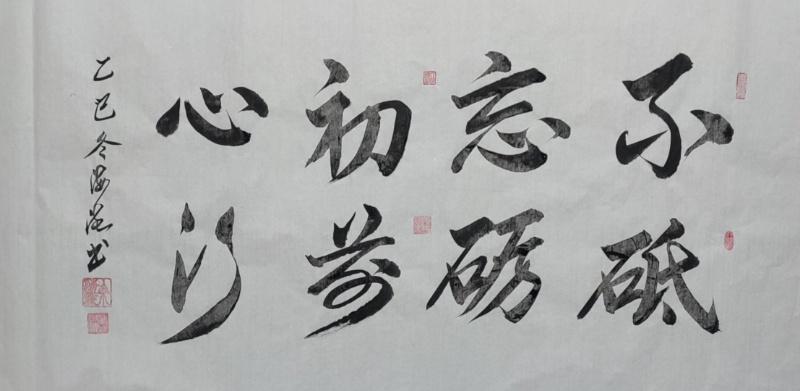 不忘初心
砥砺前行
乙巳冬海书